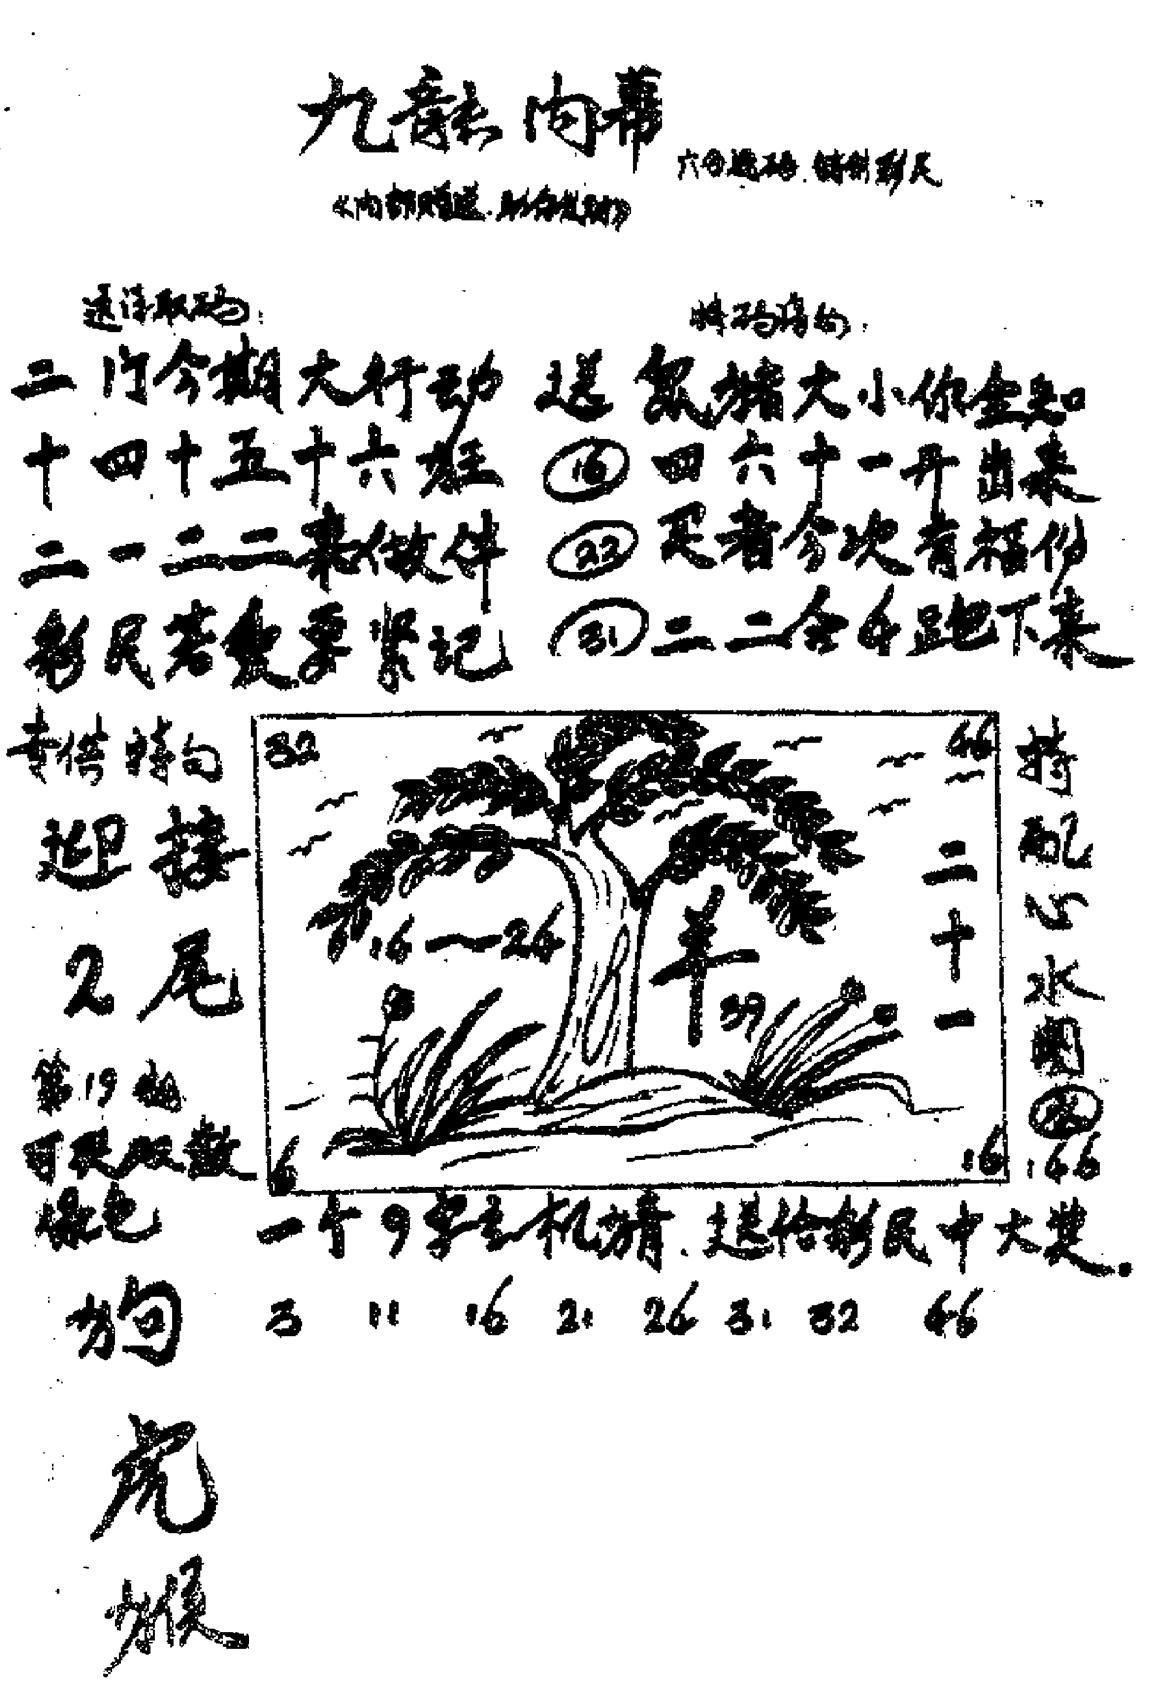 九龍内幕
六合透码 特供彩民
《内部赠送.助你发财》
透详取码:
特码诗句:
二门今期大行动
十四十五十六狂
二一二二来做伴
彩民若发要紧记
送鼠猪大小你全知
⑯四六十一开出来
㉒买者今次有福份
㉛二二合手跑下来
专供特句
迎接
2尾
第19期
绿色
狗
虎
猴
32
46
16—26
羊
39
二十一
6
16
特配心水图
166
一个9字玄机猜.送给彩民中大奖.
3 11 16 21 26 31 32 46